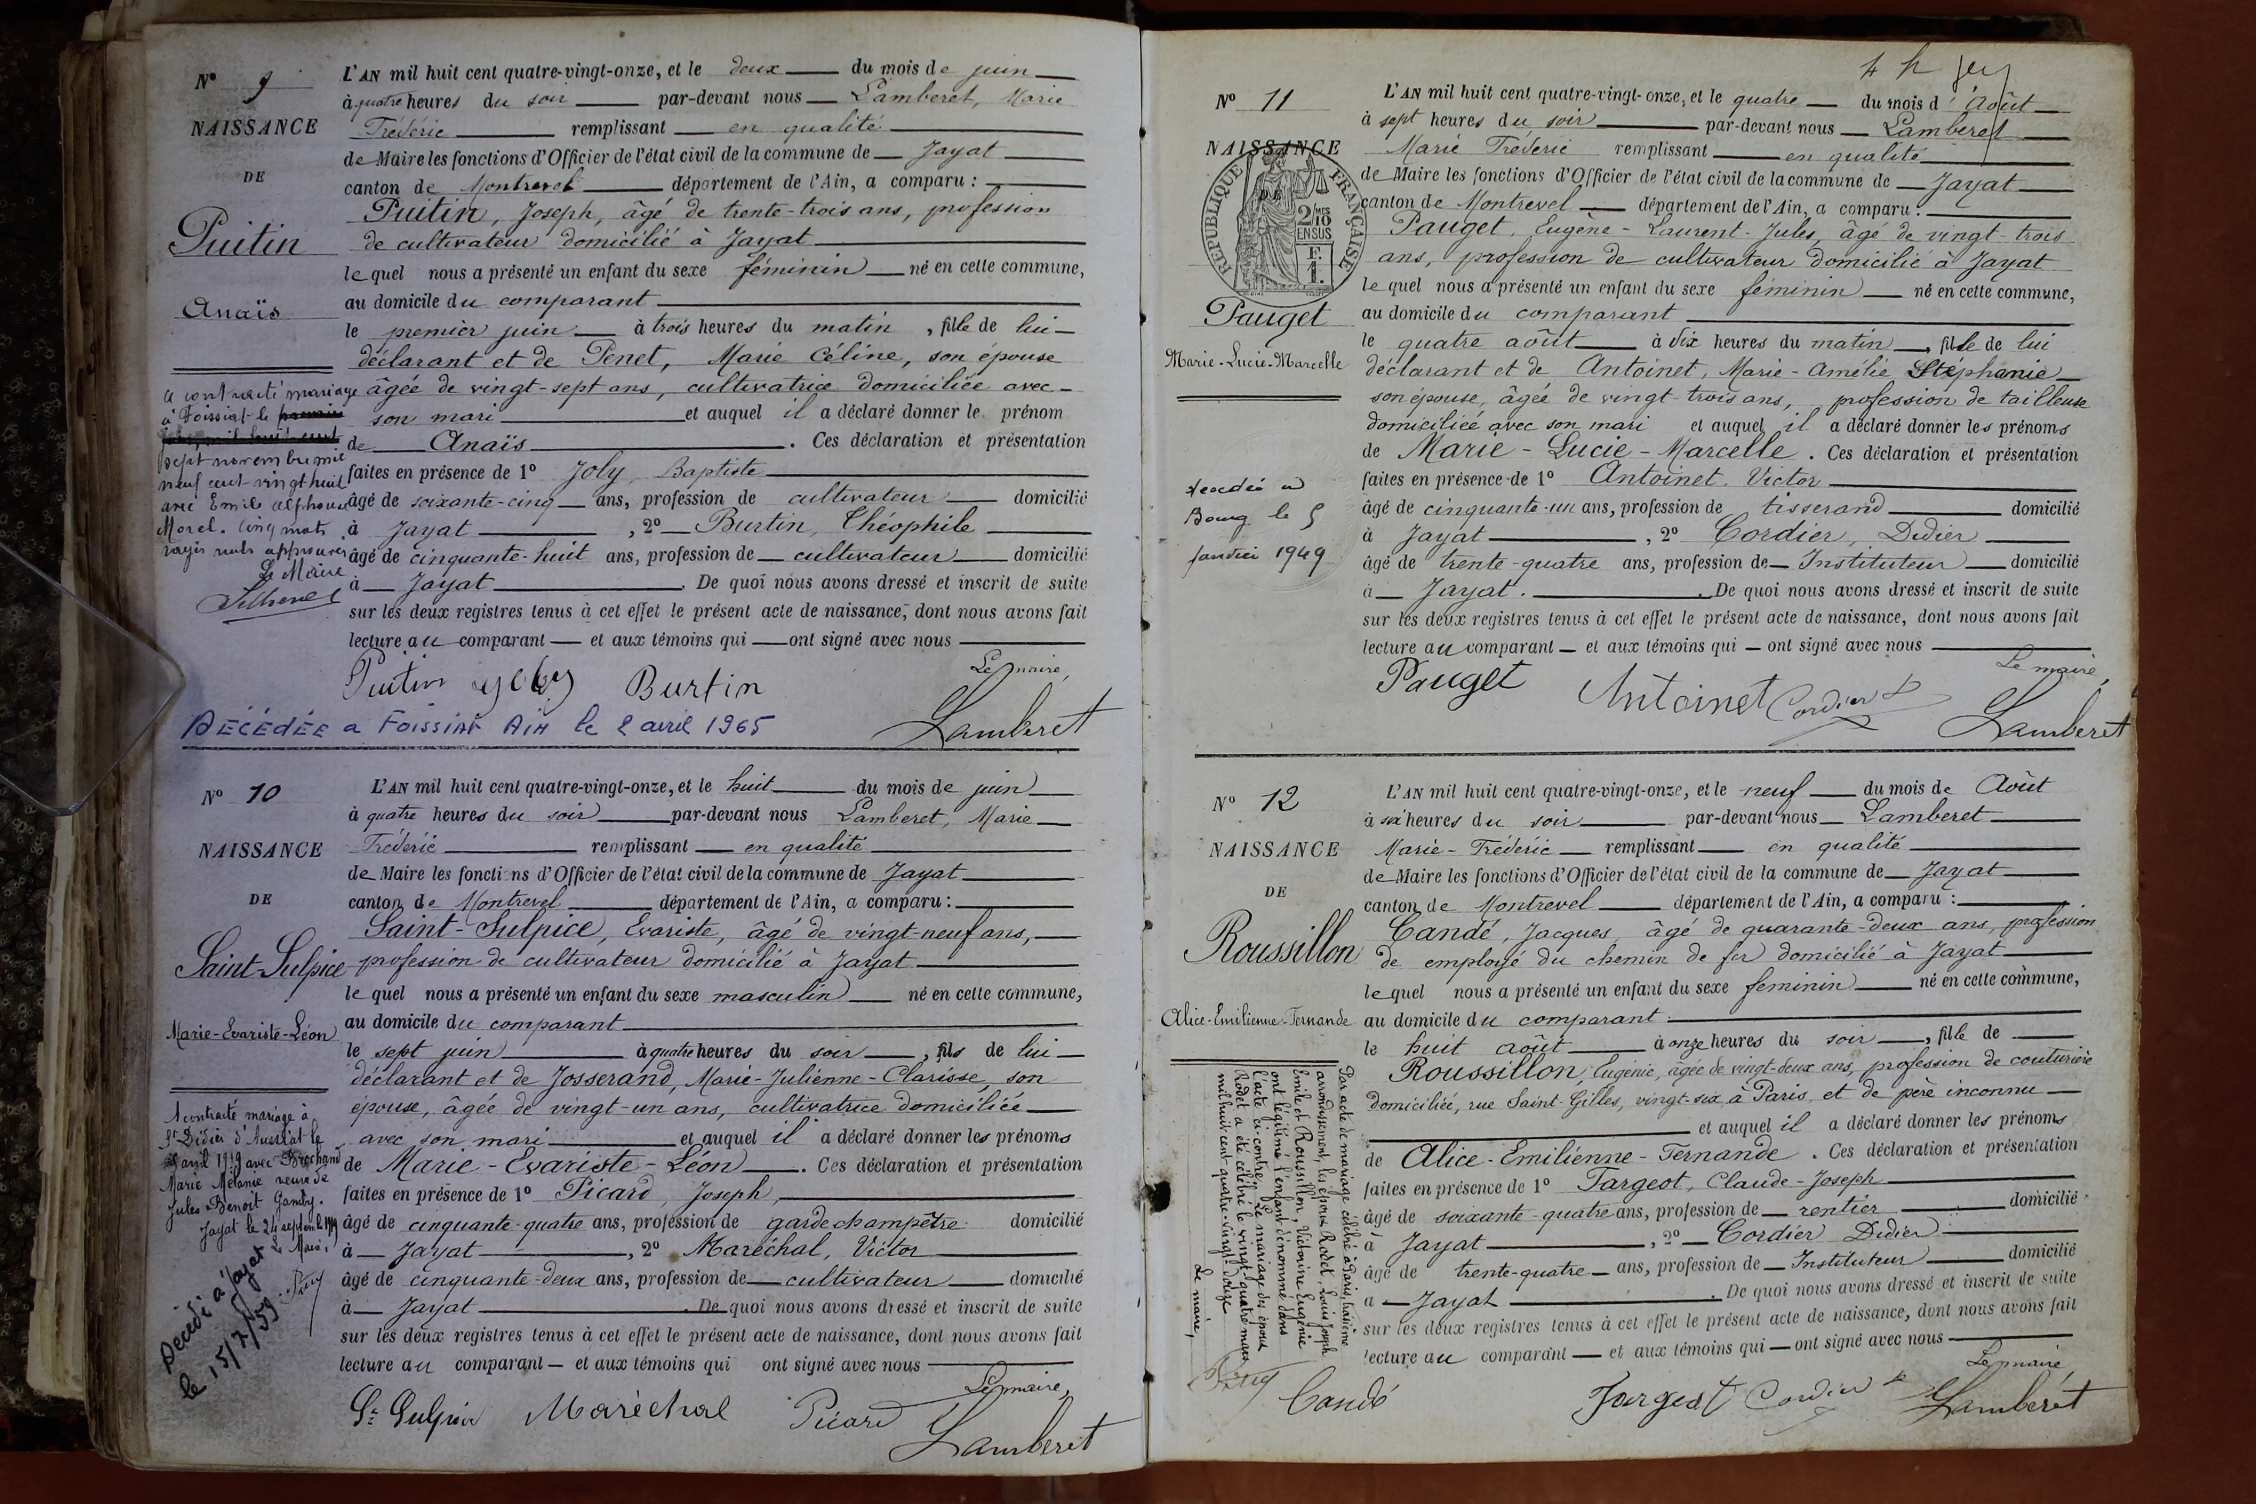 N° 9
NAISSANCE
DE
Puitin
Anaïs
L'AN mil huit cent quatre-vingt-onze, et le deux du mois de juin
à quatre heures du soir par-devant nous Lamberet, Marie
Frédéric remplissant en qualité
de Maire les fonctions d'Officier de l'état civil de la commune de Jayat
canton de Montrevel département de l'Ain, a comparu :
Puitin, Joseph, âgé de trente-trois ans, profession
de cultivateur domicilié à Jayat
lequel nous a présenté un enfant du sexe féminin né en cette commune,
au domicile du comparant
le premier juin à trois heures du matin, fille de lui
déclarant et de Penet, Marie Céline, son épouse
âgée de vingt-sept ans, cultivatrice domiciliée avec
son mari et auquel il a déclaré donner le prénom
de Anaïs. Ces déclaration et présentation
faites en présence de 1° Joly, Baptiste
âgé de soixante-cinq ans, profession de cultivateur domicilié
à Jayat, 2° Burtin, Théophile
âgé de cinquante-huit ans, profession de cultivateur domicilié
à Jayat. De quoi nous avons dressé et inscrit de suite
sur les deux registres tenus à cet effet le présent acte de naissance, dont nous avons fait
lecture au comparant et aux témoins qui ont signé avec nous
Le maire,
Puitin Joly Burtin
Lamberet
a contracté mariage
à Foissiat le premier
sept novembre mil
neuf cent vingt huit
avec Emile Alphonse
Morel. Cinq mots
rayés nuls approuvés
Le Maire
DÉCÉDÉE a FOISSIAT AIN le 2 avril 1965
N° 10
NAISSANCE
DE
Saint-Sulpice
Marie-Evariste-Léon
L'AN mil huit cent quatre-vingt-onze, et le huit du mois de juin
à quatre heures du soir par-devant nous Lamberet, Marie
Frédéric remplissant en qualité
de Maire les fonctions d'Officier de l'état civil de la commune de Jayat
canton de Montrevel département de l'Ain, a comparu :
Saint-Sulpice, Evariste, âgé de vingt-neuf ans,
profession de cultivateur domicilié à Jayat
lequel nous a présenté un enfant du sexe masculin né en cette commune,
au domicile du comparant
le sept juin à quatre heures du soir, fils de lui
déclarant et de Josserand, Marie-Julienne-Clarisse, son
épouse, âgée de vingt-un ans, cultivatrice domiciliée
avec son mari et auquel il a déclaré donner les prénoms
de Marie-Evariste-Léon. Ces déclaration et présentation
faites en présence de 1° Picard, Joseph,
âgé de cinquante-quatre ans, profession de garde champêtre domicilié
à Jayat, 2° Maréchal, Victor
âgé de cinquante-deux ans, profession de cultivateur domicilié
à Jayat. De quoi nous avons dressé et inscrit de suite
sur les deux registres tenus à cet effet le présent acte de naissance, dont nous avons fait
lecture au comparant et aux témoins qui ont signé avec nous
Le maire,
St Sulpice Maréchal Picard
Lamberet
A contracté mariage à
St Didier d'Aussiat le
avril 1919 avec Brochand
Marie Mélanie veuve de
Jules Benoit Gandy.
Jayat le 24 septembre 1919
Le Maire,
Décédé à Jayat
le 15/7/59
4 h
N° 11
NAISSANCE
DE
RÉPUBLIQUE FRANÇAISE
2/10 MES
EN SUS
F.
1.
Pauget
Marie-Lucie-Marcelle
L'AN mil huit cent quatre-vingt-onze, et le quatre du mois d'Août
à sept heures du soir par-devant nous Lamberet
Marie Frédéric remplissant en qualité
de Maire les fonctions d'Officier de l'état civil de la commune de Jayat
canton de Montrevel département de l'Ain, a comparu :
Pauget, Eugène-Laurent-Jules, âgé de vingt-trois
ans, profession de cultivateur domicilié à Jayat
lequel nous a présenté un enfant du sexe féminin né en cette commune,
au domicile du comparant
le quatre août à dix heures du matin, fille de lui
déclarant et de Antoinet, Marie-Amélie Stéphanie
son épouse, âgée de vingt-trois ans, profession de tailleuse
domiciliée avec son mari et auquel il a déclaré donner les prénoms
de Marie-Lucie-Marcelle. Ces déclaration et présentation
faites en présence de 1° Antoinet Victor
âgé de cinquante-un ans, profession de tisserand domicilié
à Jayat, 2° Cordier, Didier
âgé de trente-quatre ans, profession de Instituteur domicilié
à Jayat. De quoi nous avons dressé et inscrit de suite
sur les deux registres tenus à cet effet le présent acte de naissance, dont nous avons fait
lecture au comparant et aux témoins qui ont signé avec nous
Le maire,
Pauget Antoinet Cordier
Lamberet
decédée à
Bourg le 5
janvier 1949
N° 12
NAISSANCE
DE
Roussillon
Alice-Emilienne-Fernande
L'AN mil huit cent quatre-vingt-onze, et le neuf du mois de Août
à six heures du soir par-devant nous Lamberet
Marie-Frédéric remplissant en qualité
de Maire les fonctions d'Officier de l'état civil de la commune de Jayat
canton de Montrevel département de l'Ain, a comparu :
Candé, Jacques, âgé de quarante-deux ans, profession
de employé du chemin de fer domicilié à Jayat
lequel nous a présenté un enfant du sexe féminin né en cette commune,
au domicile du comparant
le huit août à onze heures du soir, fille de
Roussillon, Eugénie, âgée de vingt-deux ans, profession de couturière
domiciliée, rue Saint-Gilles, vingt-six à Paris et de père inconnu
et auquel il a déclaré donner les prénoms
de Alice-Emilienne-Fernande. Ces déclaration et présentation
faites en présence de 1° Fargeot, Claude-Joseph
âgé de soixante-quatre ans, profession de rentier domicilié
à Jayat, 2° Cordier Didier
âgé de trente-quatre ans, profession de Instituteur domicilié
à Jayat. De quoi nous avons dressé et inscrit de suite
sur les deux registres tenus à cet effet le présent acte de naissance, dont nous avons fait
lecture au comparant et aux témoins qui ont signé avec nous
Le maire,
Candé Fargeot Cordier
Lamberet
Par acte de mariage célébré à Paris, huitième
arrondissement, les époux Rodet, Louis Joseph
Emile et Roussillon, Victorine Eugénie
ont légitimé l'enfant dénommé dans
l'acte ci-contre. Le mariage des époux
Rodet a été célébré le vingt-quatre mars
mil huit cent quatre-vingt-douze
Le maire,